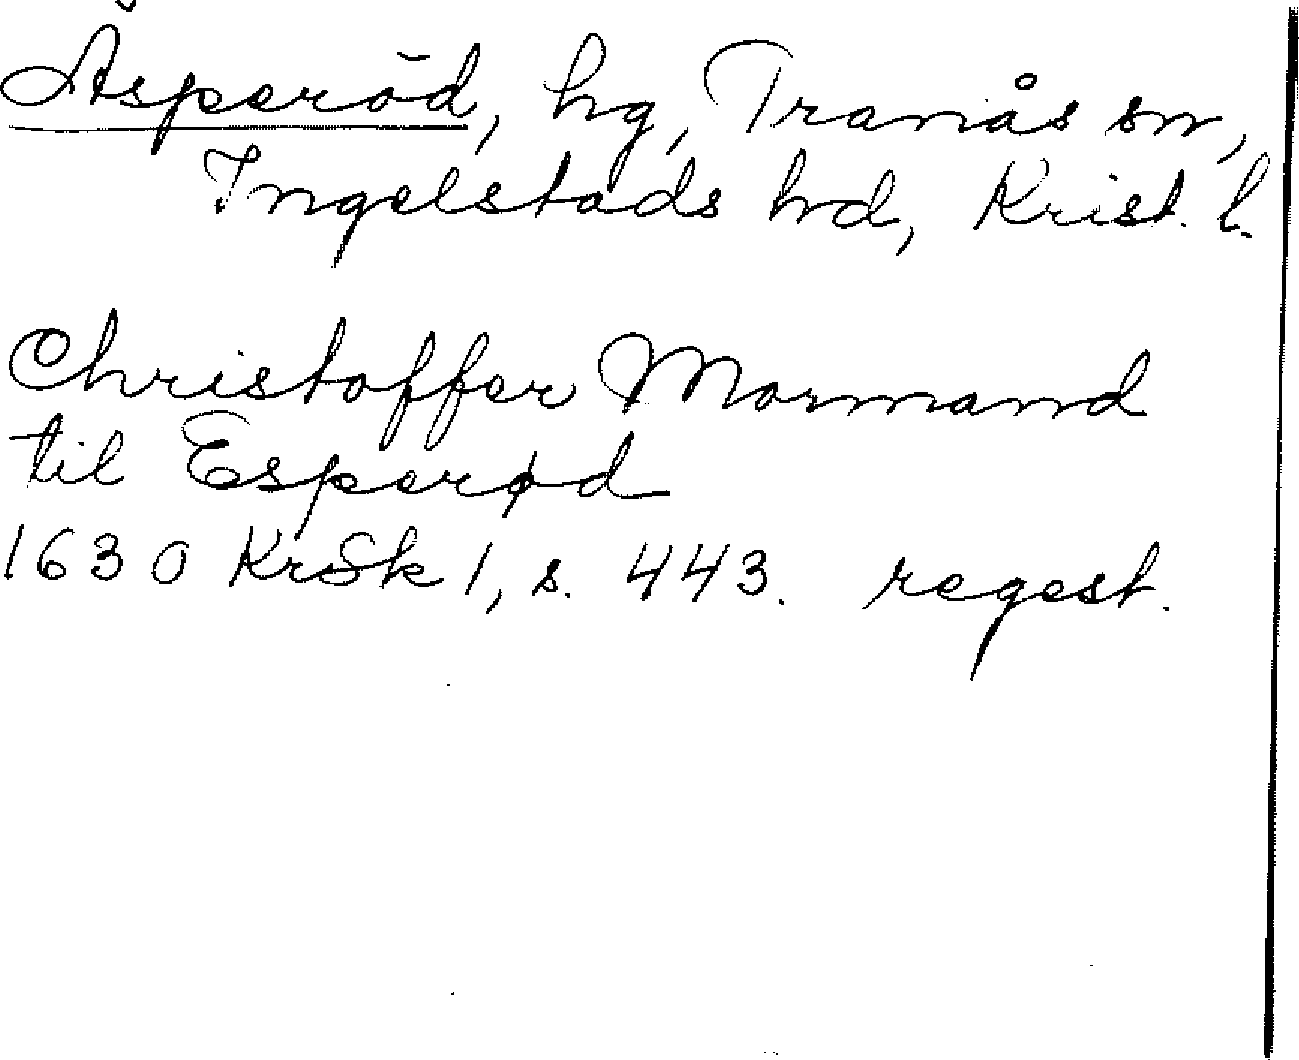 Åsperöd, hg, Tranås sn,
Ingelstads hd, Krist. l.
Christoffer Mormand
til Esperød
1630 KrSk 1, s. 443. regest.